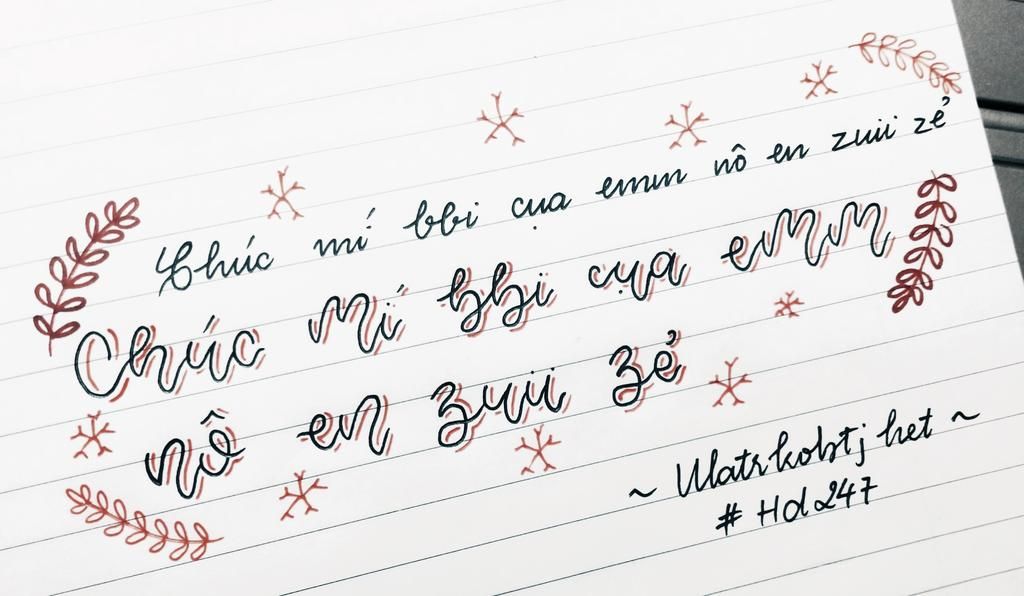 Chúc mí bbi cụa emm nô en zuii zẻ
Chúc mí bbi cụa emm
nô en zuii zẻ
~ Matrkobtj het ~
# Hd247